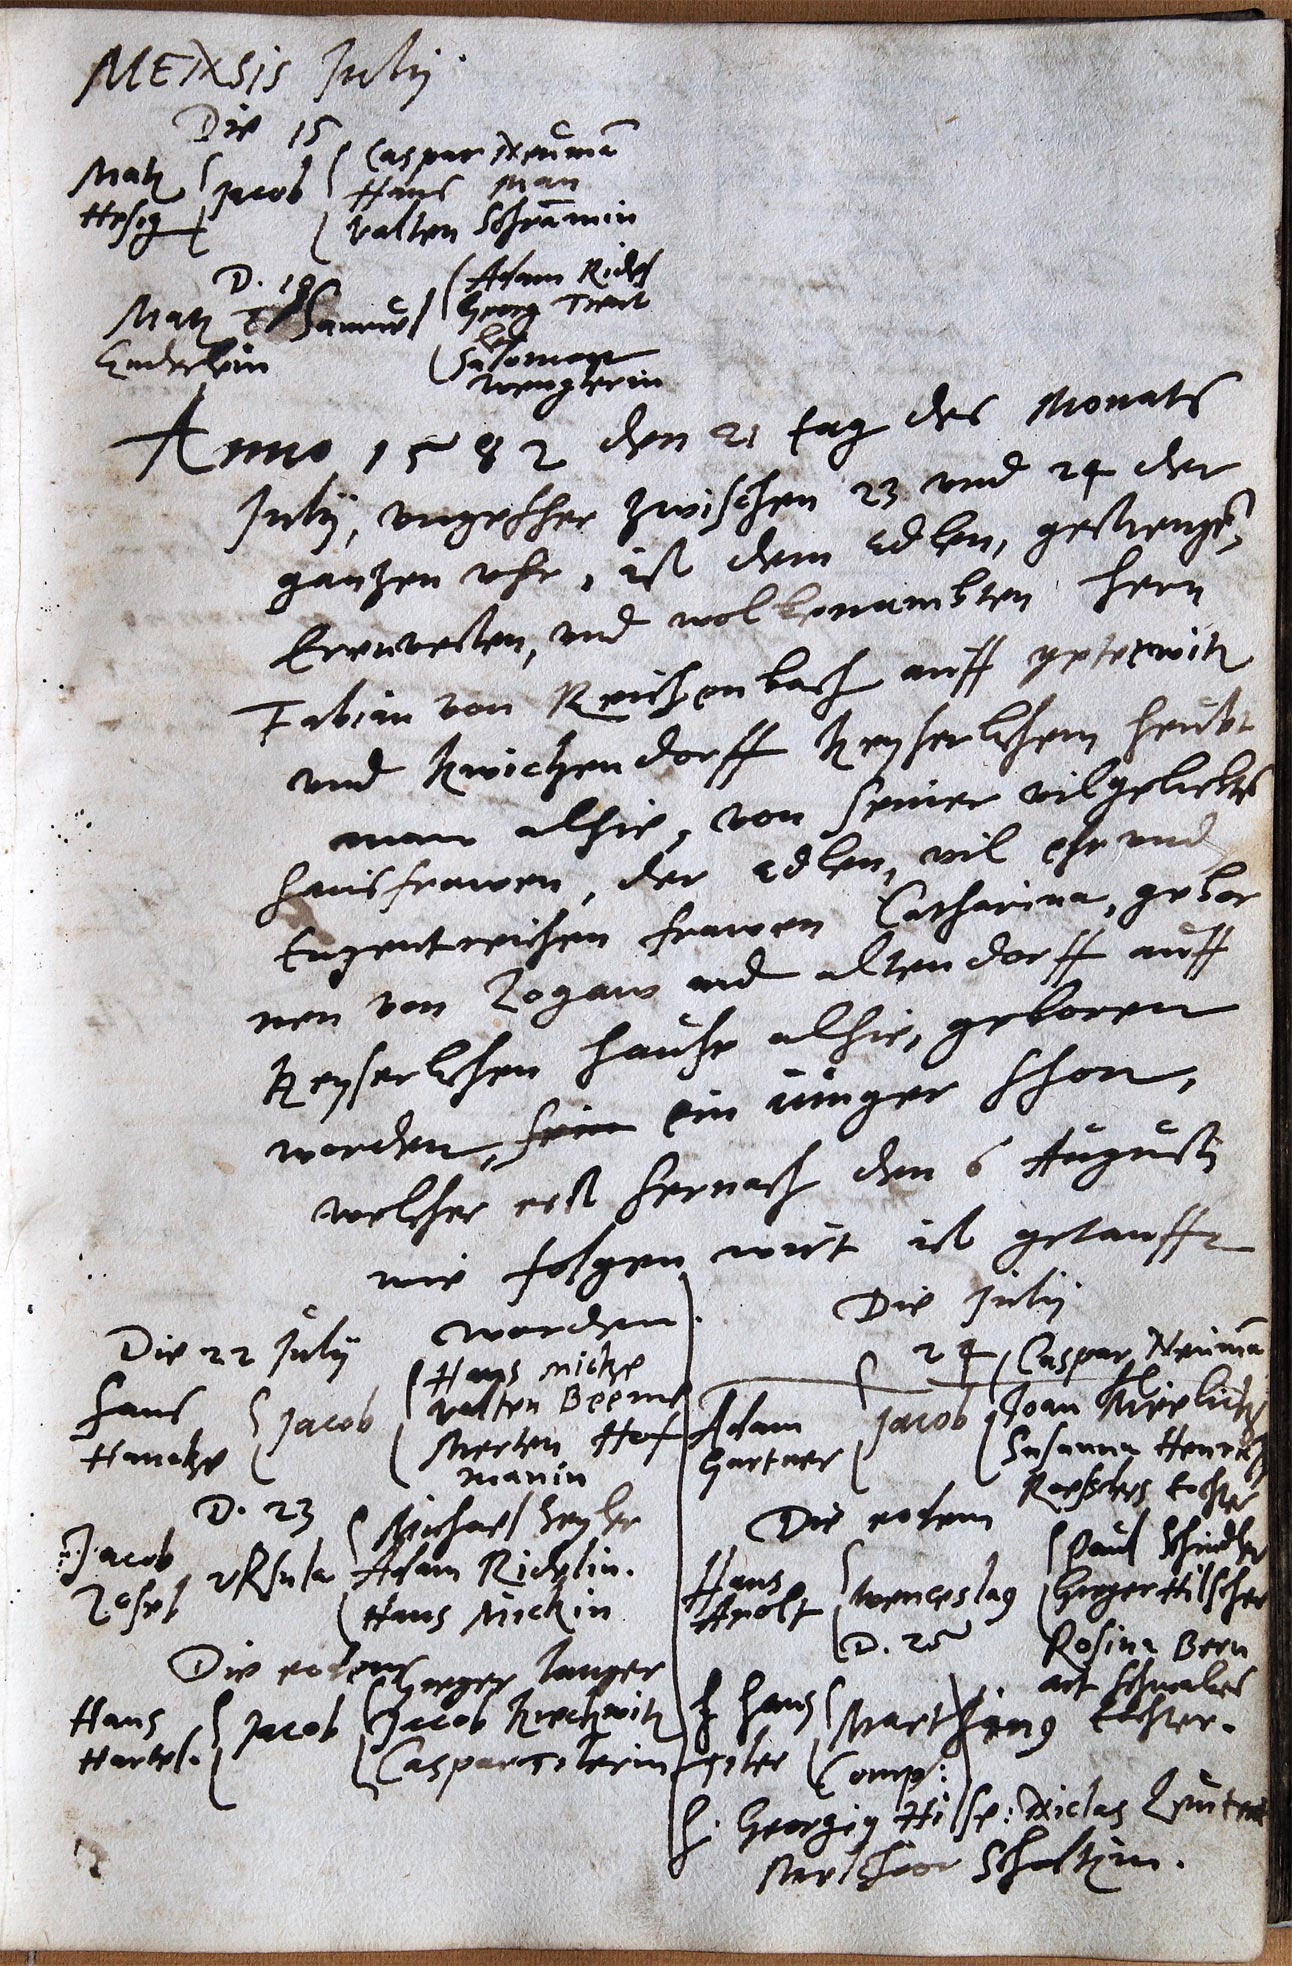 MENSIS Julij
Die 15
Matz Hesig Jacob Caspar Neuma
Hans Man
Valten Schramin
D. 18
Matz Enderlein Samuel Adam Ridel
Georg Treut
ler
Salomon
Wenglerin
Anno 1582 den 21 tag des Monats
Julij, ungefher zwischen 23 und 24 der
gantzen uhr, ist dem Edlen, gestrengen,
Erenvesten, und wolbenambten hern
Fabian von Reichenbach auff peterwitz
und Kwitzendorff Keyserlichem heubt
man alhie, von seiner vilgeliebten
hausfrawen, der Edlen, vil ehr und
tugentreichen frawen Catharina, gebor
nen von Logaw und altendorff auff
Keyserlichen hause alhie, geboren
worden, sein ein iunger shon,
welcher erst hernach den 6 Augusti
wie folgen wirt ist getaufft
worden.
Die 22 Julij
Hans Hancke Jacob Hans Nicke
Valten Beeme
Merten Hof
manin
D. 23
Jacob Ursula Michael
Adam Ridelin.
Hans Nickin
Die eodem
Hans Hartel. Jacob Greger Langer
Jacob
Caspar Tilerin
Die Julij
24
Adam Gartner Jacob Caspar Neuma
Joan
Susanna Henrich
tochter
Die eodem
Hans Arnolt Wenceslaus Paul Schindler
Greger Hilscher
Rosina Bern
art Schwalbes
tochter.
D. 25
H Hans Martinus
Comp:
H. Georgius Hilse: Niclas
Melchior Scholtzin.